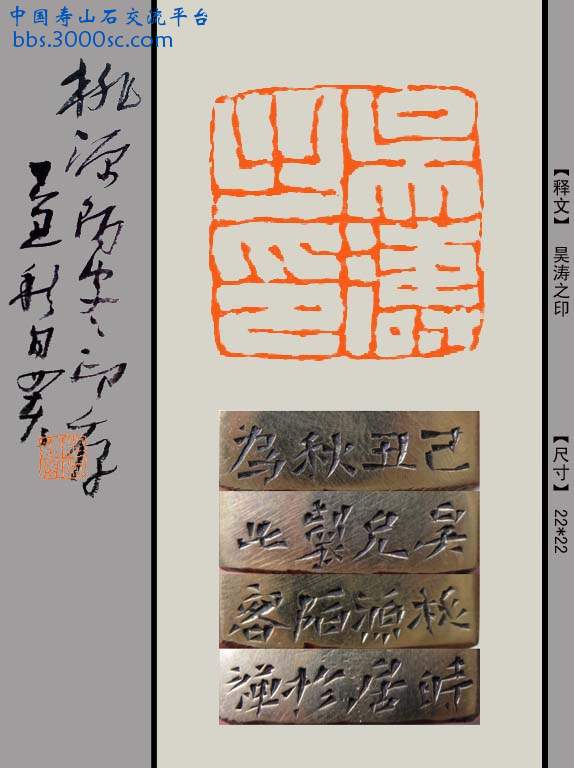 中国寿山石交流平台
bbs.3000sc.com
桃源陌客印存
吴濤
之印
【释文】 吴涛之印
【尺寸】 22*22
己丑秋為
吴兄製此
桃源陌客
時居於